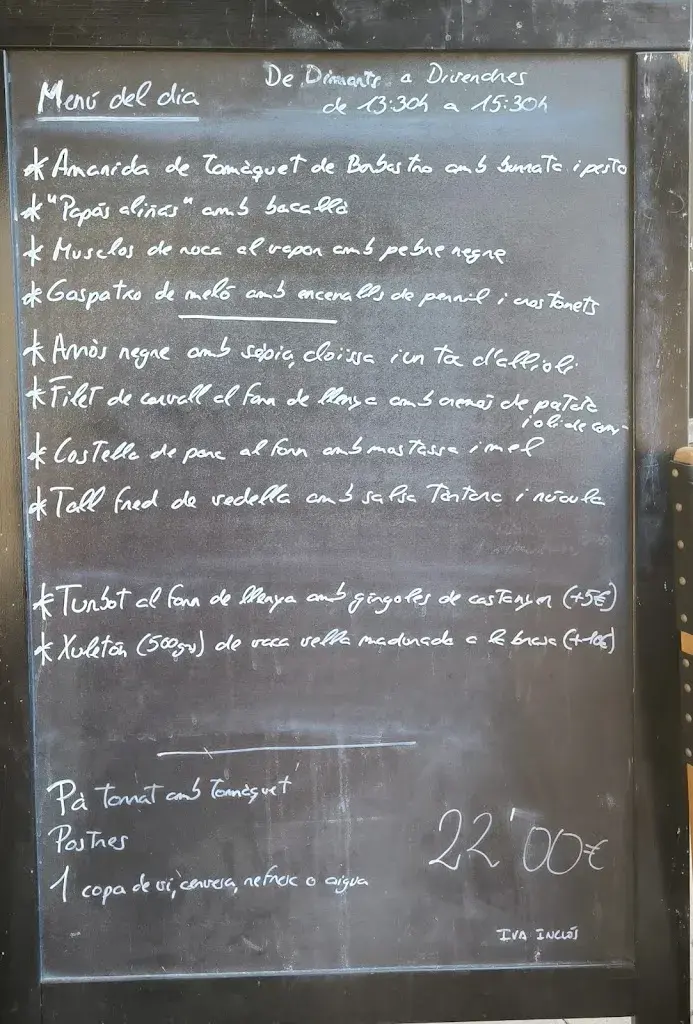 Menú del dia
De Dimarts a Divendres
de 13:30h a 15:30h
* Amanida de Tomàquet de Barbastro amb burrata i pesto
* "Papas aliñas" amb bacallà
* Musclos de roca al vapor amb pebre negre
* Gaspatxo de meló amb encenalls de pernil i crostonets
* Arròs negre amb sépia, cloïssa i un toc d'allioli
* Filet de corvall al forn de llenya amb cremós de patata
i oli de
* Costella de porc al forn amb mostassa i mel
* Tall fred de vedella amb salsa Tàrtara i rúcula
* Turbot al forn de llenya amb gírgoles de castanyer (+5€)
* Xuletón (500gr) de vaca vella madurada a la brasa (+10€)
Pà torrat amb Tomàquet
Postres
1 copa de vi, cervesa, refresc o aigua
22'00€
IVA INCLÓS